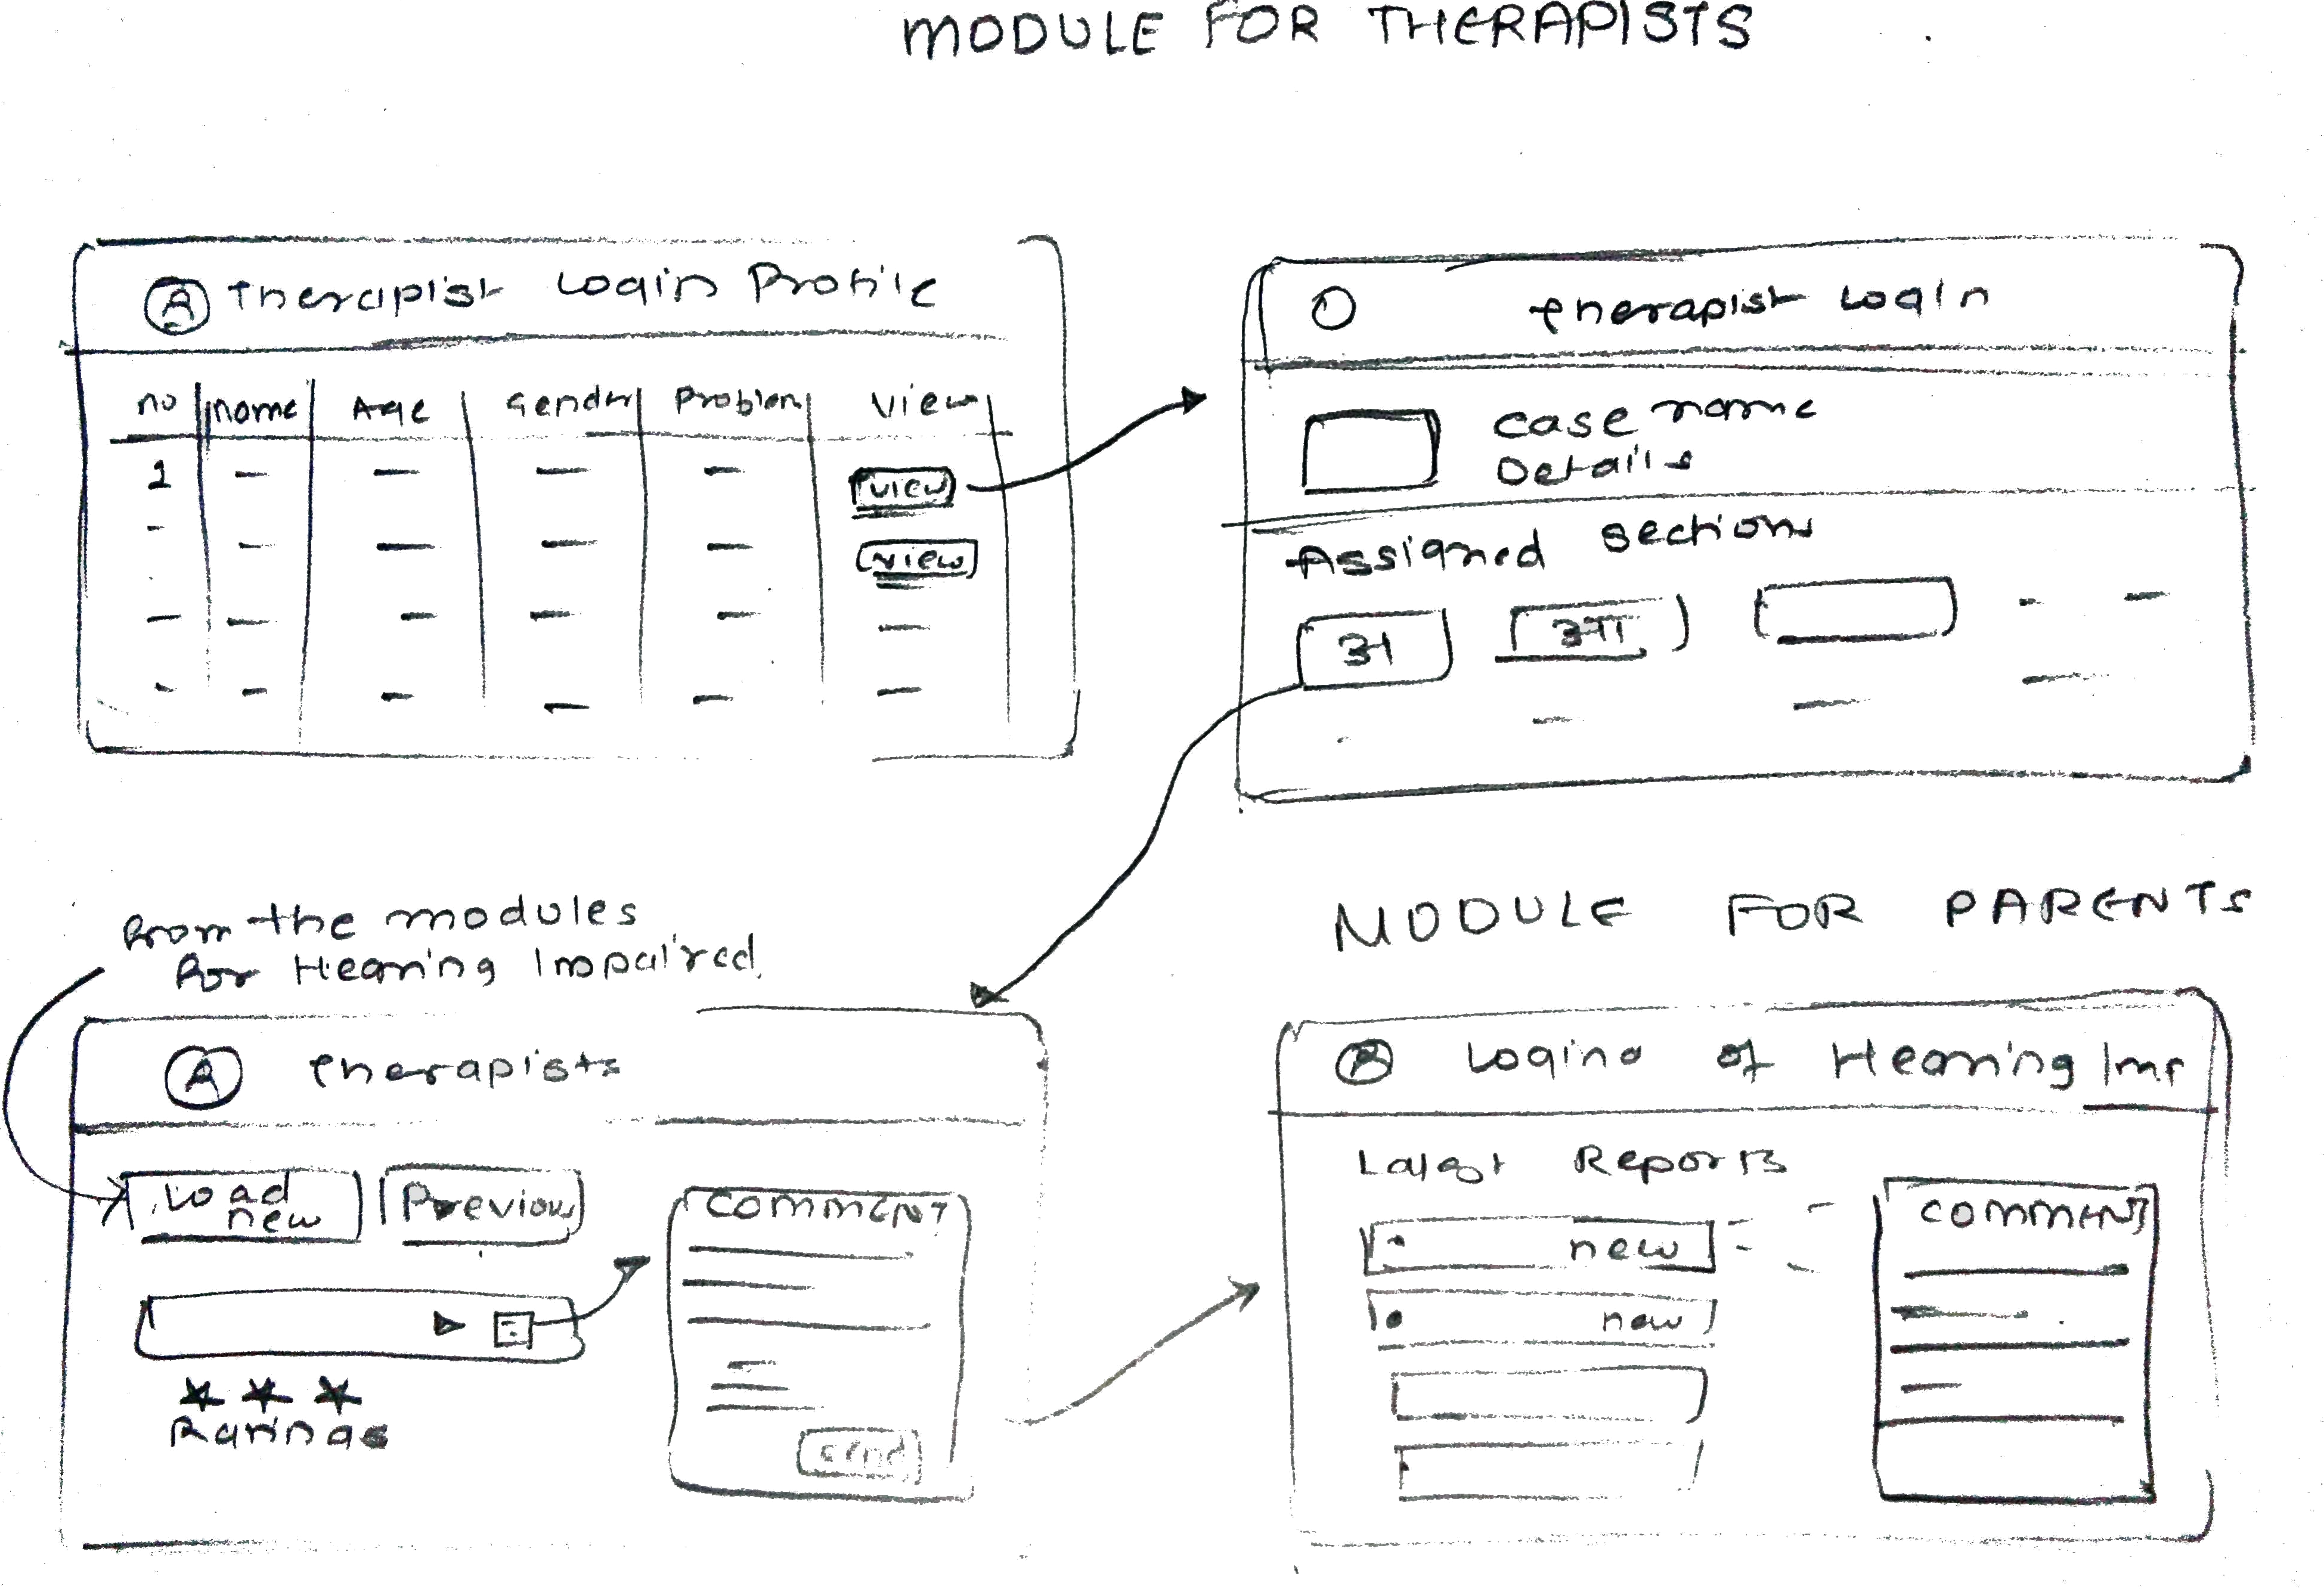 MODULE FOR THERAPISTS
A Therapist Login Profile
no name Age Gender Problem View
1
view
view
Therapist Login
case name
Details
Assigned sections
अ आ
from the modules
for Hearing Impaired
A Therapists
Load
new
Previous
COMMENT
Ratings
send
MODULE FOR PARENTS
Logins of Hearing Imp
Latest Reports
new
new
COMMENT